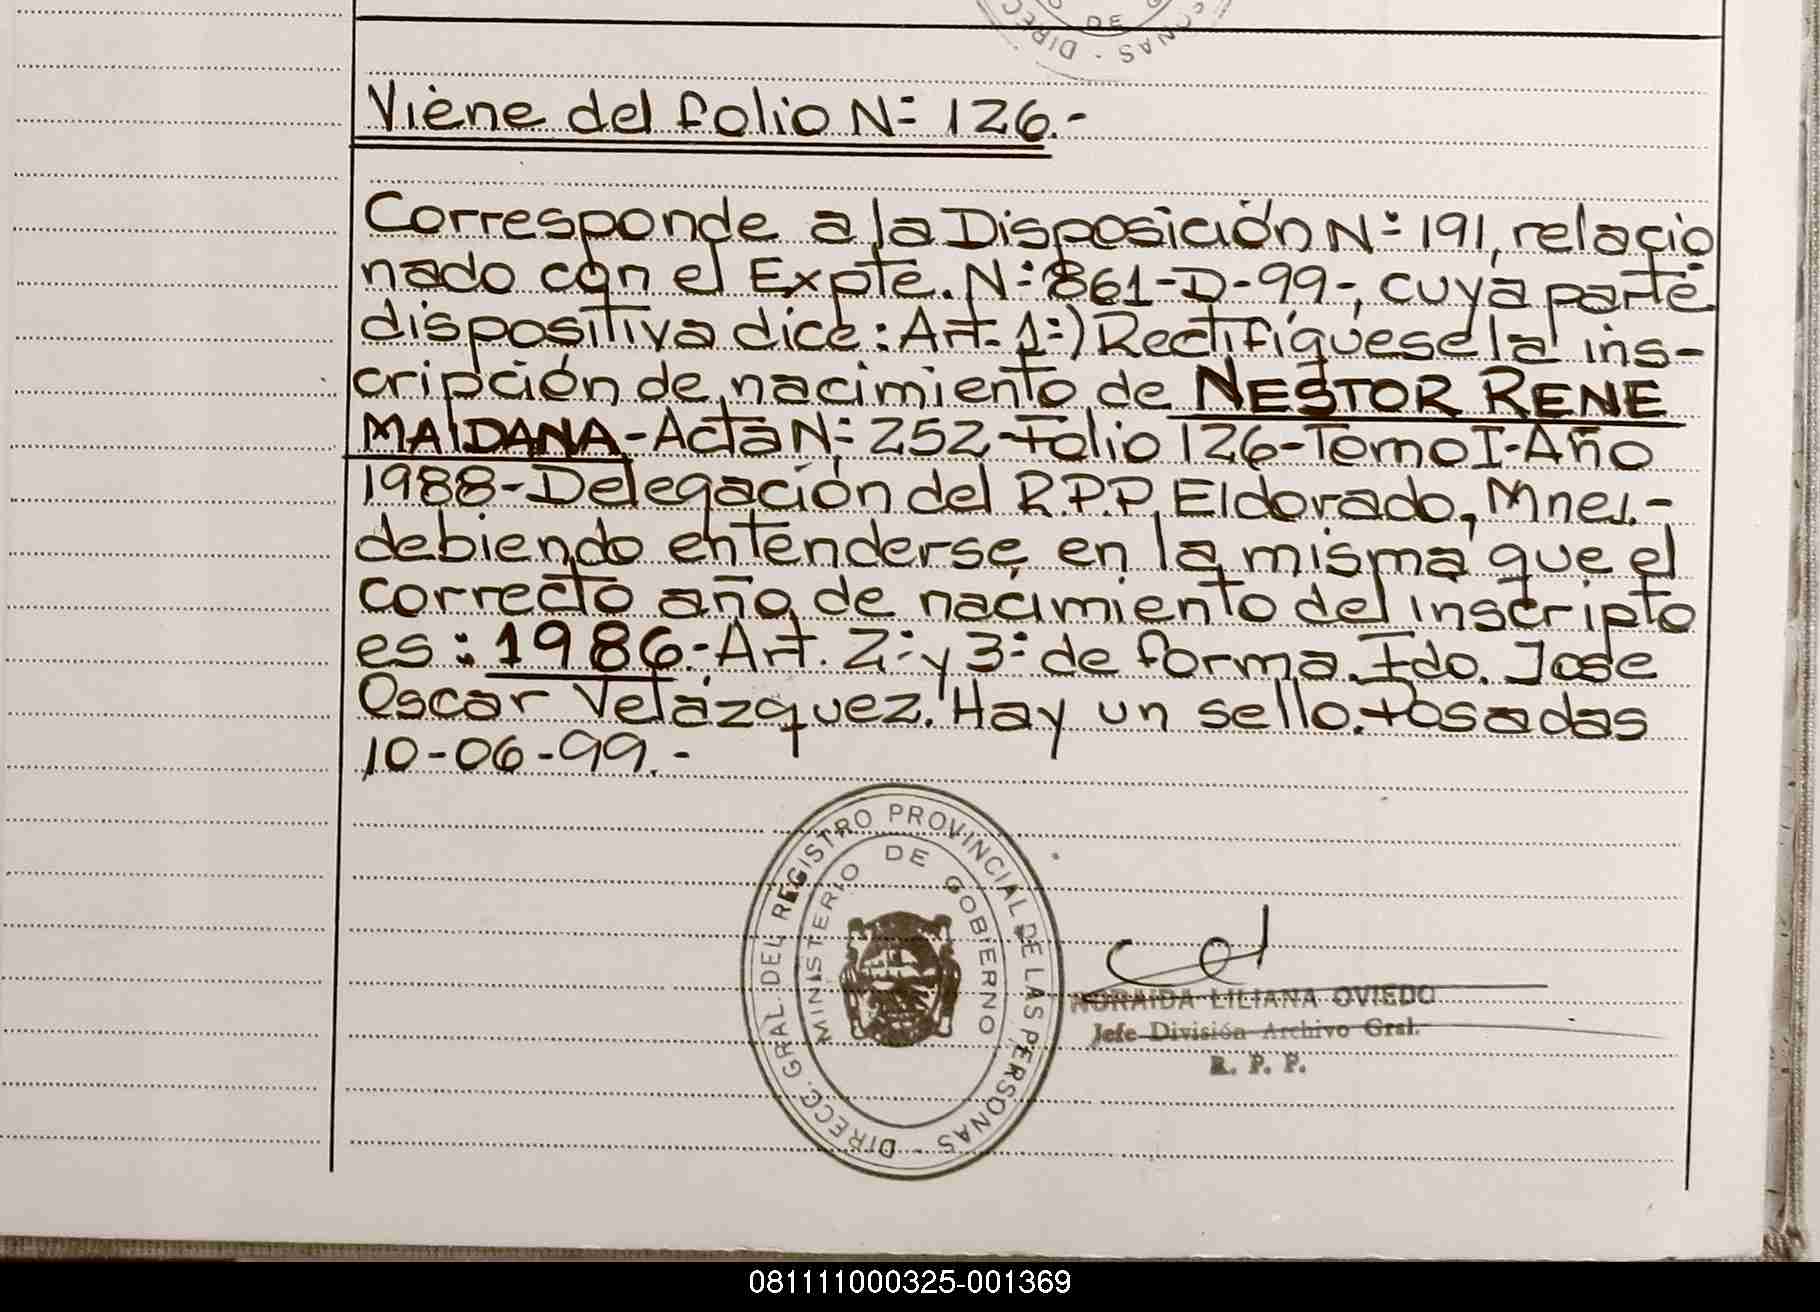 DIRECC
DE
PERSONAS - DIRECC
Viene del folio Nº 126.-
Corresponde a la Disposición Nº 191, relacio
nado con el Expte. Nº 861-D-99-, cuya parte
dispositiva dice: Art. 1º) Rectifíquese la ins-
cripción de nacimiento de NESTOR RENE
MALDANA-Acta Nº 252-Folio 126-Tomo I-Año
1988-Delegación del R.P.P. Eldorado, Mnes.-
debiendo entenderse en la misma que el
correcto año de nacimiento del inscripto
es: 1986.-Art. 2º y 3º de forma. Fdo. Jose
Oscar Velázquez. Hay un sello. Posadas
10-06-99.-
DIRECC. GRAL. DEL REGISTRO PROVINCIAL DE LAS PERSONAS -
MINISTERIO DE GOBIERNO
LILIANA OVIEDO
Jefe División Archivo Gral.
R. P. P.
081111000325-001369